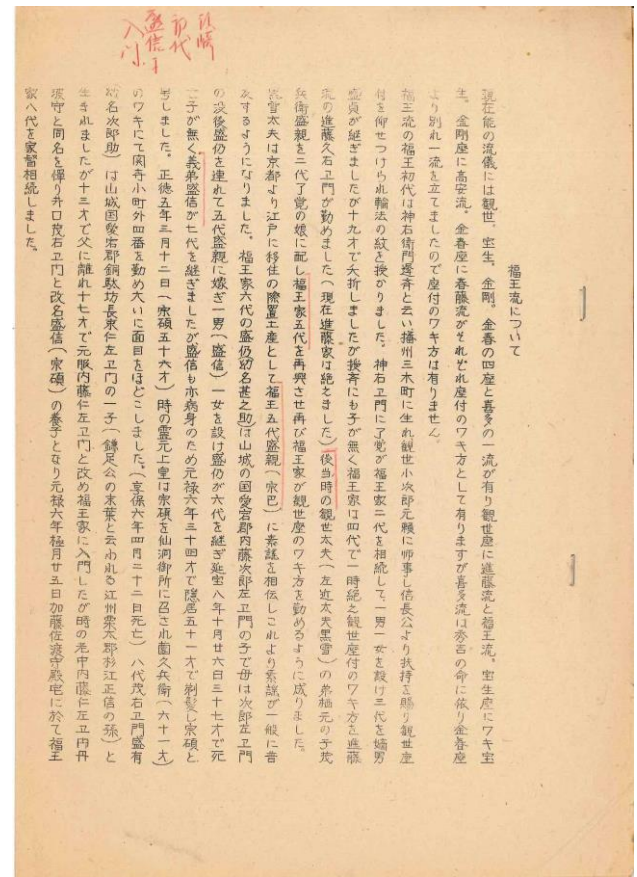 福王流について
現在能の流儀には観世、宝生、金剛、金春の四座と喜多の一流が有り観世座に進藤流と福王流、宝生座にワキ宝
生、金剛座に高安流、金春座に春藤流がそれぞれ座付のワキ方として有りますが喜多流は秀吉の命に依り金春座
より別れ一流を立てましたので座付のワキ方は有りません。
福王流の福王初代は神右衛門盛斉と云い播州三木町に生れ観世小次郎元頼に師事し信長公より扶持を賜り観世座
付を仰せつけられ輪法の紋を授かりました。神右ヱ門に了覚が福王家二代を相続して、一男一女を設け三代を嫡男
盛貞が継ぎましたが十九才で夭折しましたが後斉にも子が無く福王家は四代で一時絶え観世座付のワキ方を進藤
流の進藤久右ヱ門が勤めました（現在進藤家は絶えました）後当時の観世太夫（左近太夫黒雪）の弟栖元の子茂
兵衛盛親を二代了覚の娘に配し福王家五代を再興させ再び福王家が観世座のワキ方を勤めるように成りました。
黒雪太夫は京都より江戸に移住の際置土産として福王五代盛親（宗巴）に素謡を相伝しこれより素謡が一般に普
及するようになりました。福王家六代の盛仍幼名甚之助は山城の国愛宕郡内藤次郎左ヱ門の子で母は次郎左ヱ門
の没後盛仍を連れて五代盛親に嫁ぎ一男（盛信）一女を設け盛仍が六代を継ぎ延宝八年十月廿六日三十七才で死
子が無く義弟盛信が七代を継ぎましたが盛信も亦病身のため元禄六年三十四才で隠居五十一才で剃髪し宗碩と
号しました。正徳五年三月十二日（宗碩五十六才）時の霊元上皇は宗碩を仙洞御所に召され薗久兵衛（六十一才）
のワキにて関寺小町外四番を勤め大いに面目をほどこしました。（享保六年四月二十二日死亡）八代茂右ヱ門盛有
幼名次郎助）は山城国愛宕郡銅駄坊長泉仁左ヱ門の一子（鎌足公の末葉と云われる江州栗太郡杉江正信の孫）と
生まれましたが十三才で父に離れ十七才で元服内藤仁左ヱ門と改め福王家に入門したが時の老中内藤仁左ヱ門丹
波守と同名を憚り井口茂右ヱ門と改名盛信（宗碩）の養子となり元禄六年極月廿五日加藤佐渡守殿宅に於て福王
家八代を家督相続しました。
初代
盛信
入門